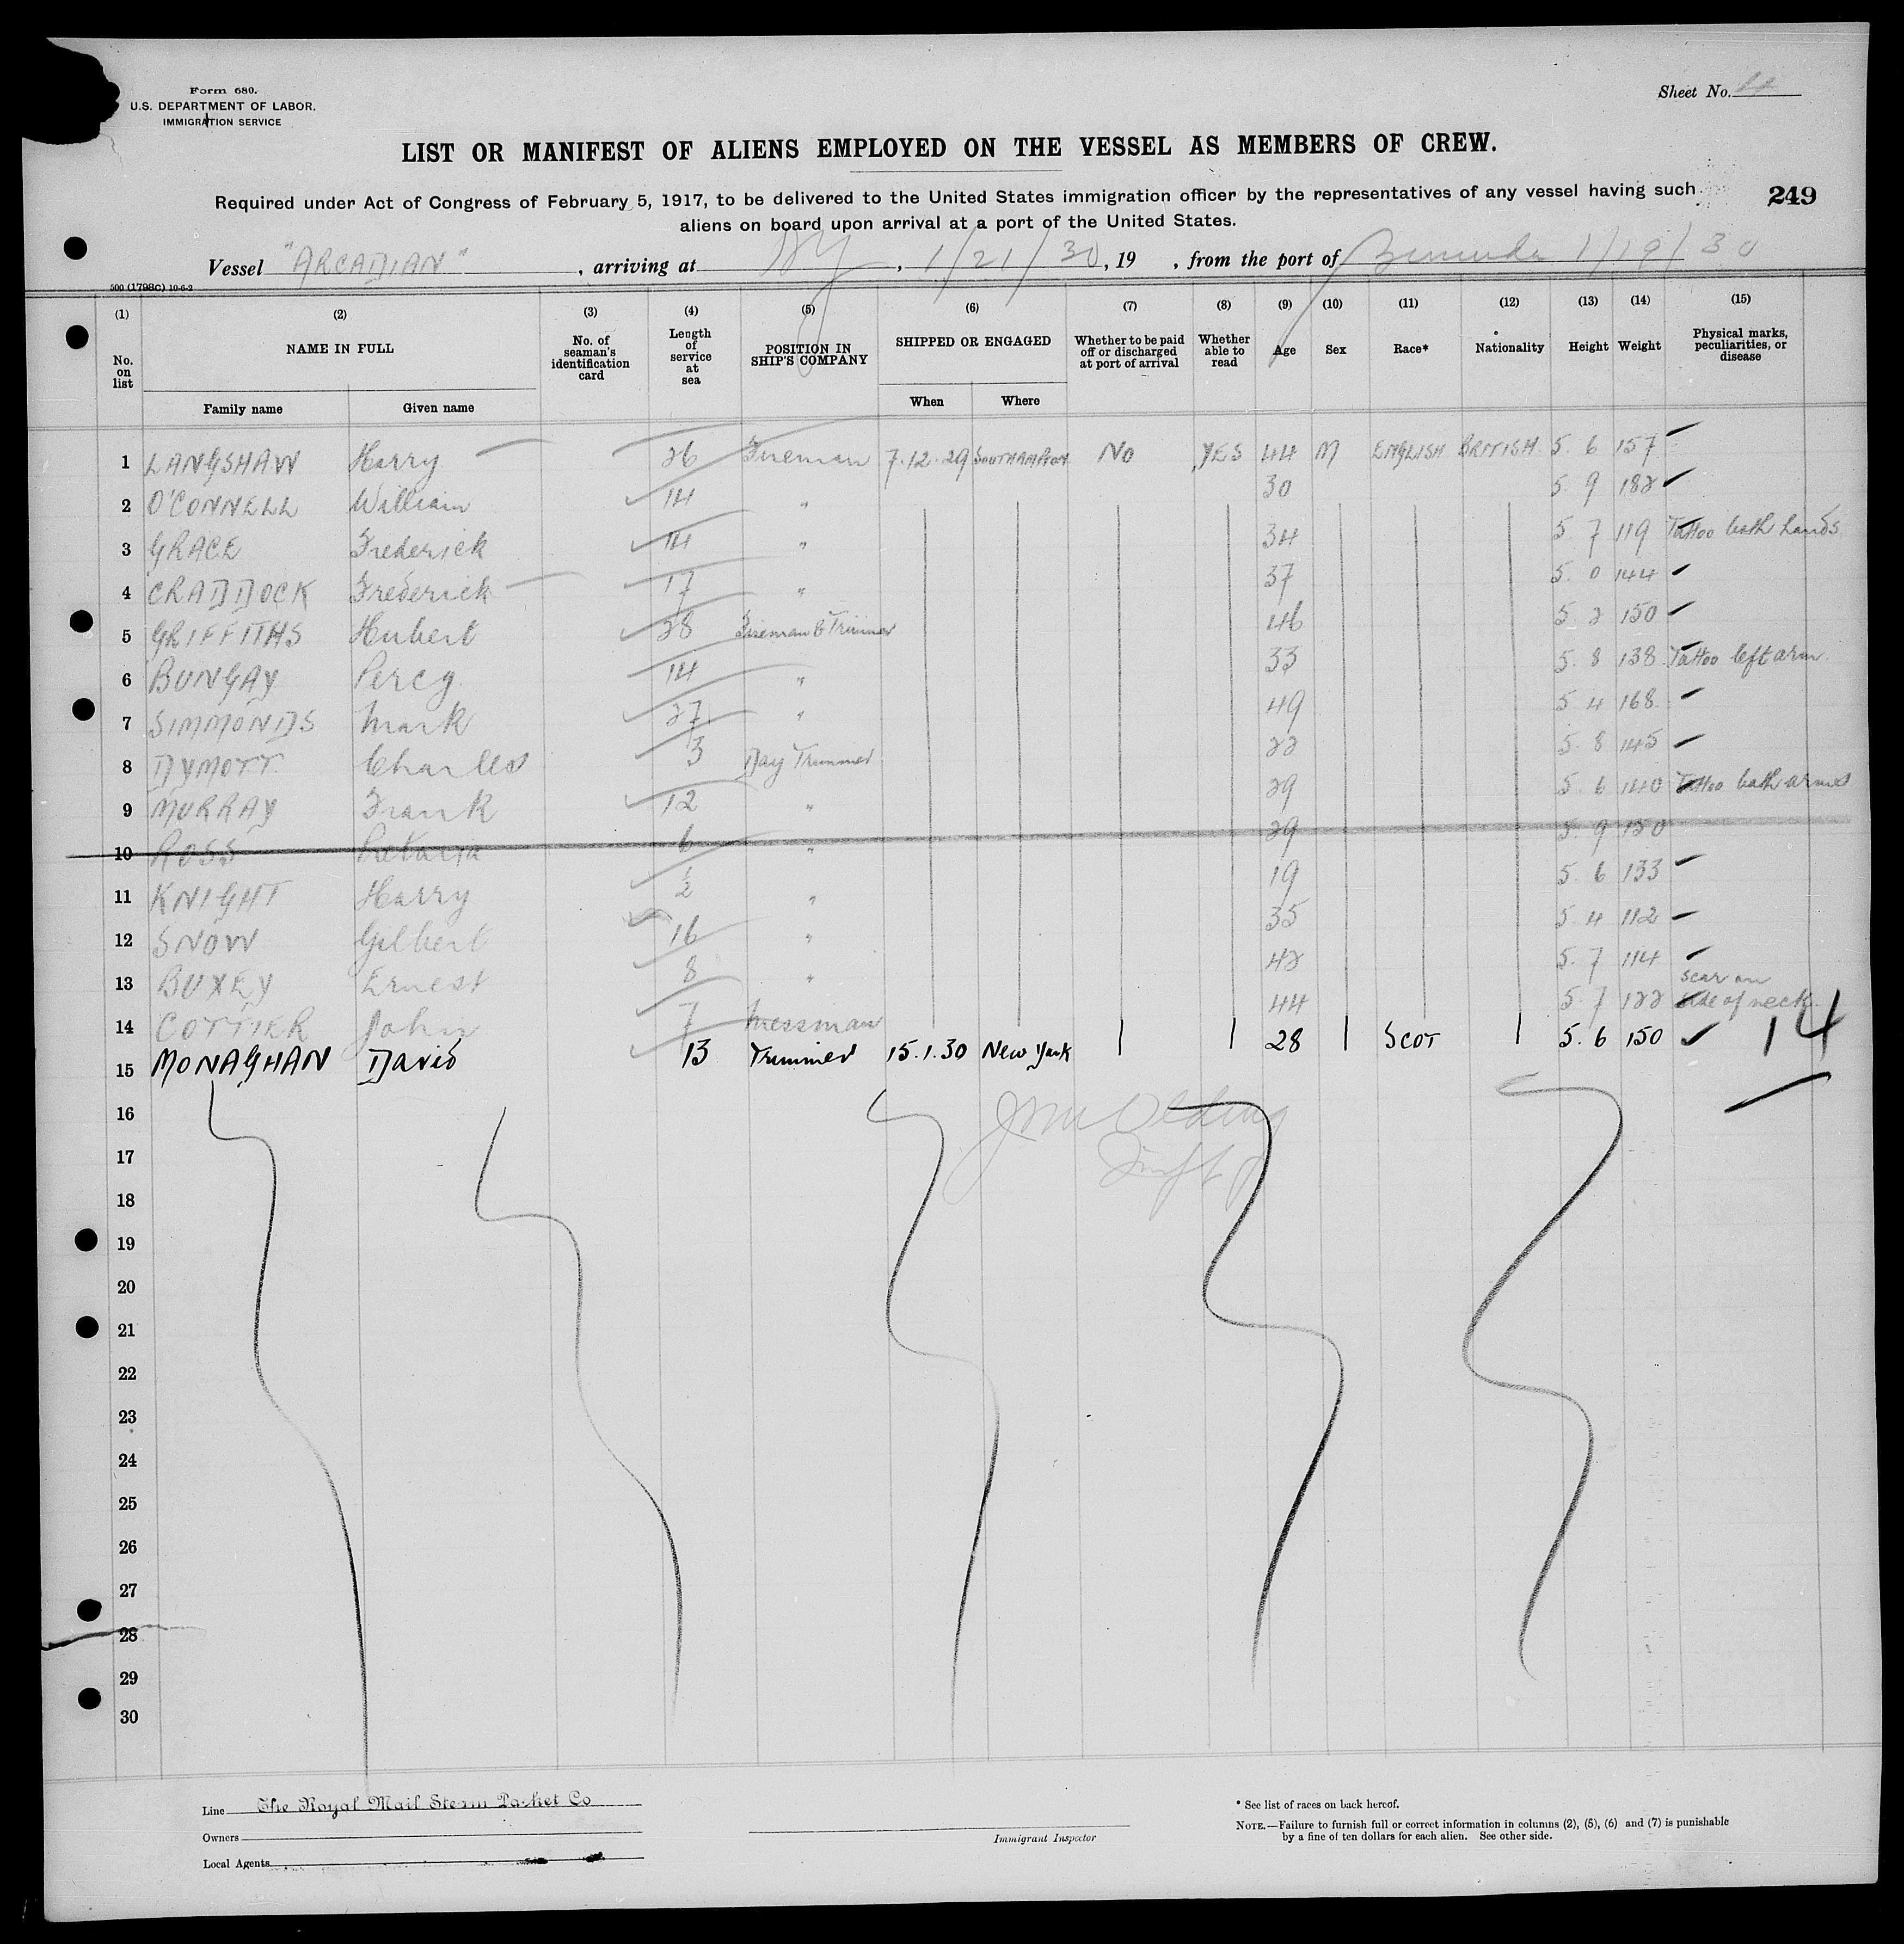 Form 680.
U.S. DEPARTMENT OF LABOR.
IMMIGRATION SERVICE
Sheet No.
LIST OR MANIFEST OF ALIENS EMPLOYED ON THE VESSEL AS MEMBERS OF CREW.
Required under Act of Congress of February 5, 1917, to be delivered to the United States immigration officer by the representatives of any vessel having such
aliens on board upon arrival at a port of the United States.
249
Vessel "ARCADIAN", arriving at NY, 1/21/30, 19 , from the port of Bermuda 1/19/30
500 (1798c) 10-6-2
(1) (2) (3) (4) (5) (6) (7) (8) (9) (10) (11) (12) (13) (14) (15)
No. on list NAME IN FULL No. of seaman's identification card Length of service at sea POSITION IN SHIP'S COMPANY SHIPPED OR ENGAGED Whether to be paid off or discharged at port of arrival Whether able to read Age Sex Race* Nationality Height Weight Physical marks, peculiarities, or disease
Family name Given name When Where
1 LANGSHAW Harry 26 Fireman 7.12.29 SOUTHAMPTON No YES 44 M ENGLISH BRITISH 5. 6 157
2 O'CONNELL William 14 " 30 5 9 182
3 GRACE Frederick 14 " 34 5 7 119 Tattoo both hands
4 CRADDOCK Frederick 17 " 37 5. 0 144
5 GRIFFITHS Hubert 28 Fireman & Trimmer 46 5 2 150
6 BUNGAY Percy 14 " 33 5. 8 138 Tattoo left arm
7 SIMMONDS Mark 27 " 49 5 4 168
8 DYMOTT Charles 3 Day Trimmer 22 5. 8 145
9 MURRAY Frank 12 " 29 5. 6 140 Tattoo both arms
10 ROSS 6 " 29 5. 9 150
11 KNIGHT Harry 1/2 " 19 5. 6 133
12 SNOW Gilbert 16 " 35 5. 4 112
13 BUXEY Ernest 8 " 42 5. 7 114
14 COTTIER John 7 Messman 44 5. 7 122 Scar on side of neck
15 MONAGHAN David 13 Trimmer 15.1.30 New York 28 SCOT 5. 6 150
14
16
17
18
19
20
21
22
23
24
25
26
27
28
29
30
Line The Royal Mail Steam Packet Co
Owners
Local Agents
Immigrant Inspector
* See list of races on back hereof.
NOTE.—Failure to furnish full or correct information in columns (2), (5), (6) and (7) is punishable
by a fine of ten dollars for each alien. See other side.